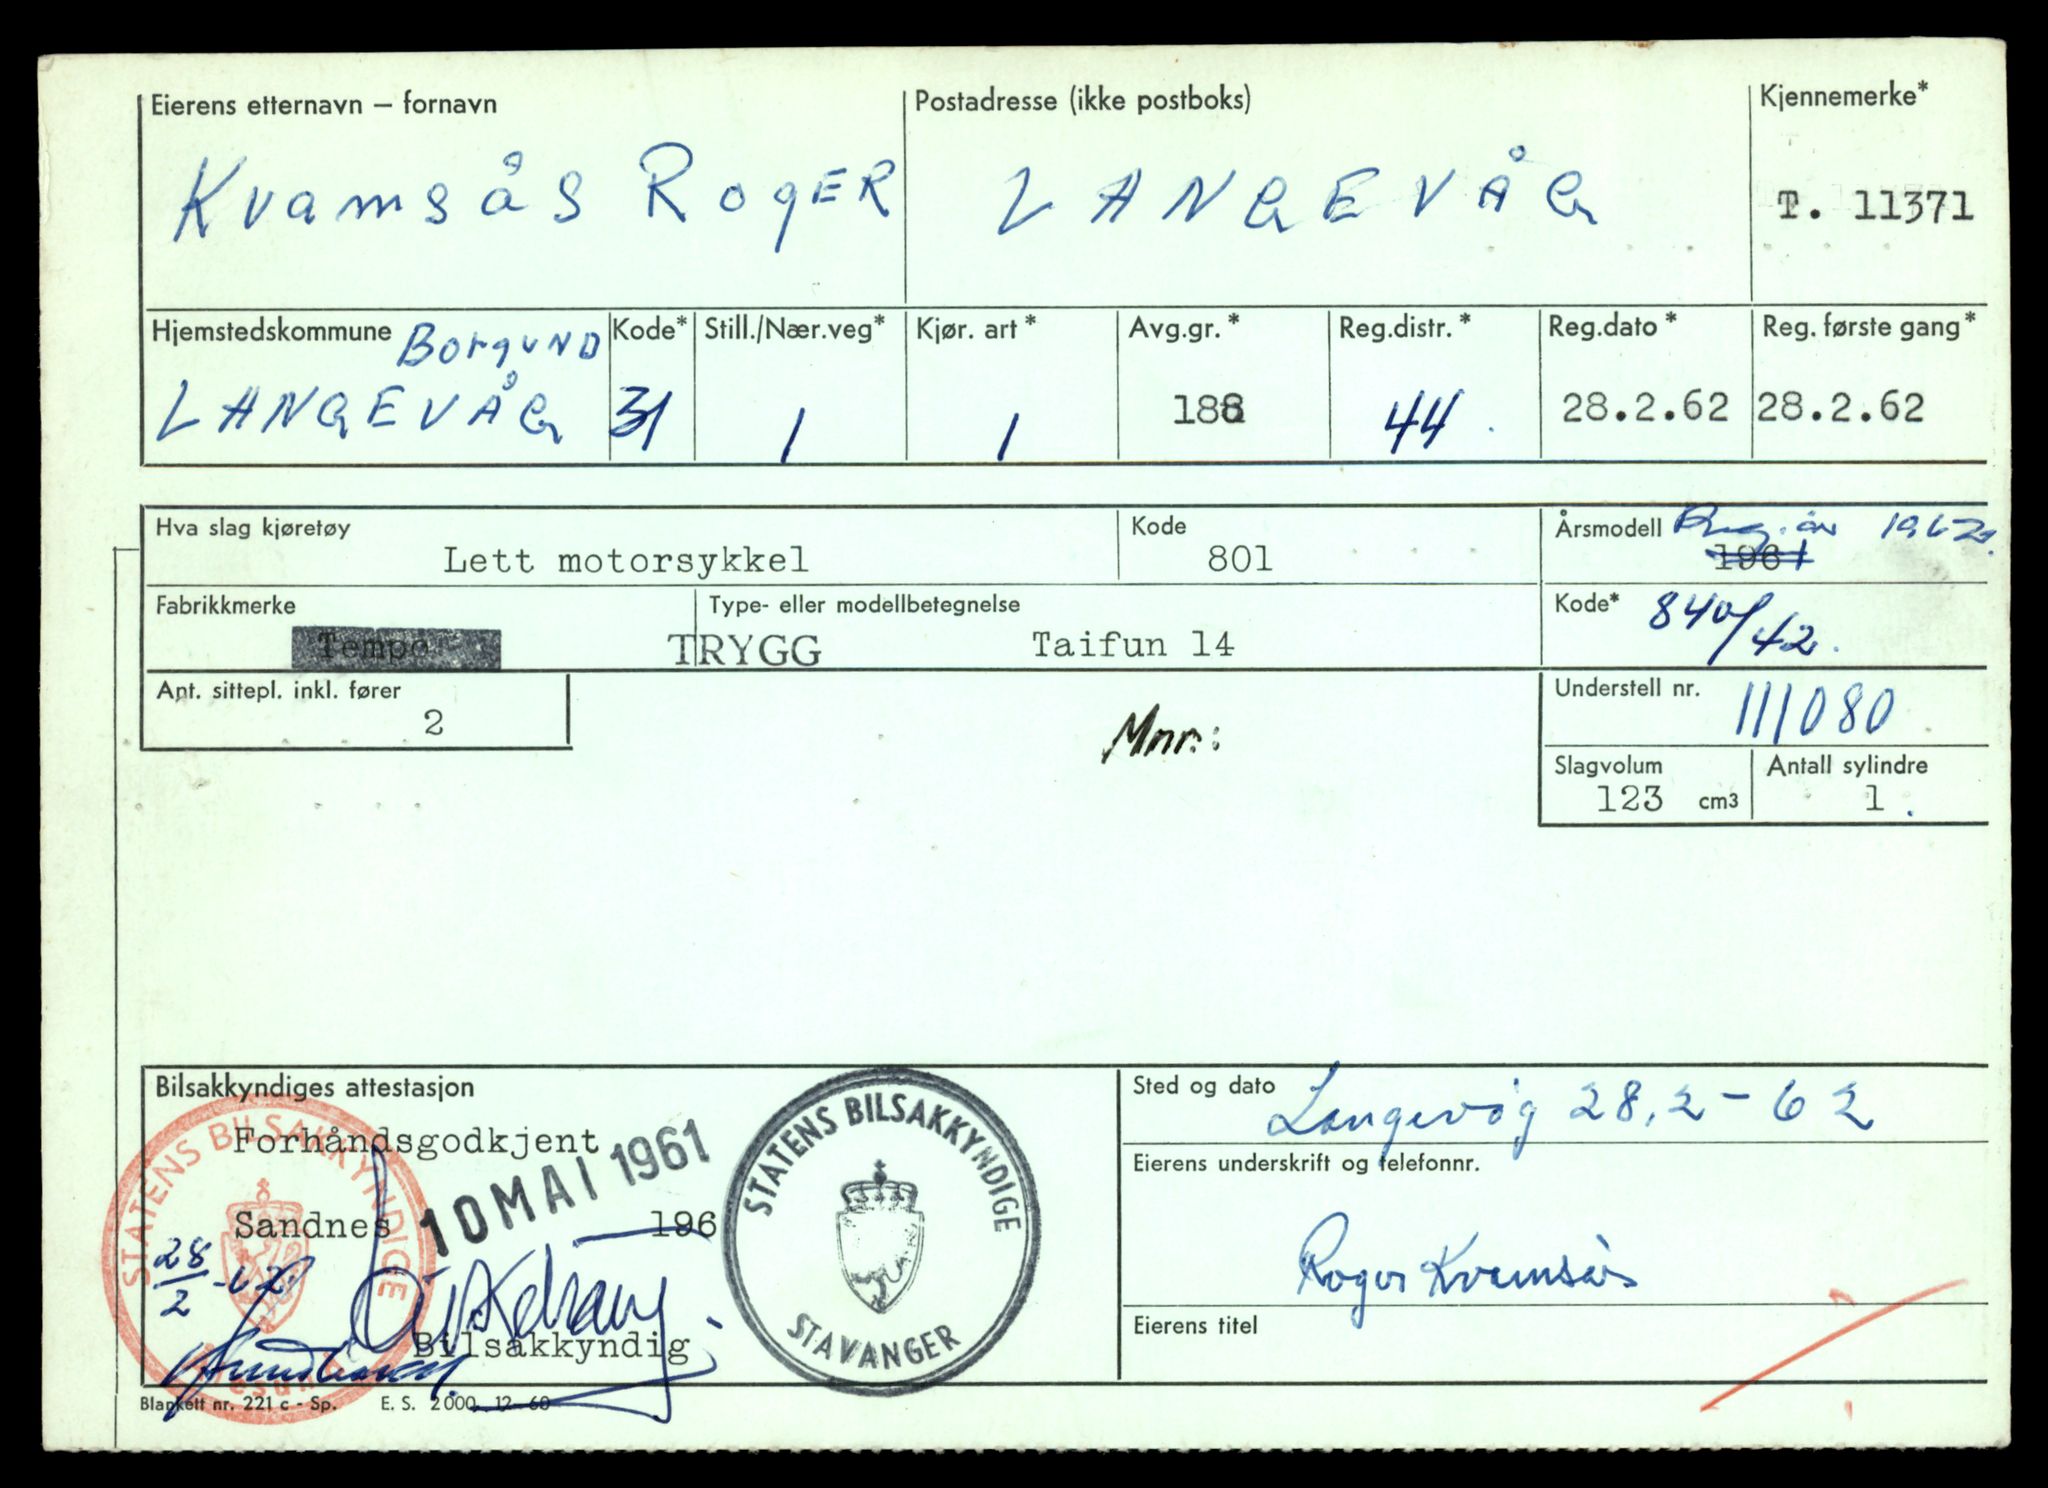 Eierens etternavn – fornavn
Postadresse (ikke postboks)
Kjennemerke*
Kvamsås RogER
LANGEVÅG
T. 11371
Hjemstedskommune BorgUND
Kode*
Still./Nær.veg*
Kjør. art*
Avg.gr.*
Reg.distr.*
Reg.dato*
Reg. første gang*
LANGEVÅG
31
1
1
188
44
28.2.62
28.2.62
Hva slag kjøretøy
Kode
Årsmodell Reg. år 1962.
Lett motorsykkel
801
1961
Fabrikkmerke
Type- eller modellbetegnelse
Kode* 840/42.
Tempo
TRYGG
Taifun 14
Ant. sittepl. inkl. fører
2
Mnr.:
Understell nr. 111080
Slagvolum
Antall sylindre
123 cm3
1
Bilsakkyndiges attestasjon
Sted og dato Langevåg 28.2-62
Forhåndsgodkjent
10 MAI 1961
STATENS BILSAKKYNDIGE
STAVANGER
STATENS BILSAKKYNDIGE
Eierens underskrift og telefonnr.
Sandnes 196
28/2-62
Roger Kvamsås
Bilsakkyndig
Eierens titel
Blankett nr. 221 c - Sp. E. S. 2000. 12-60